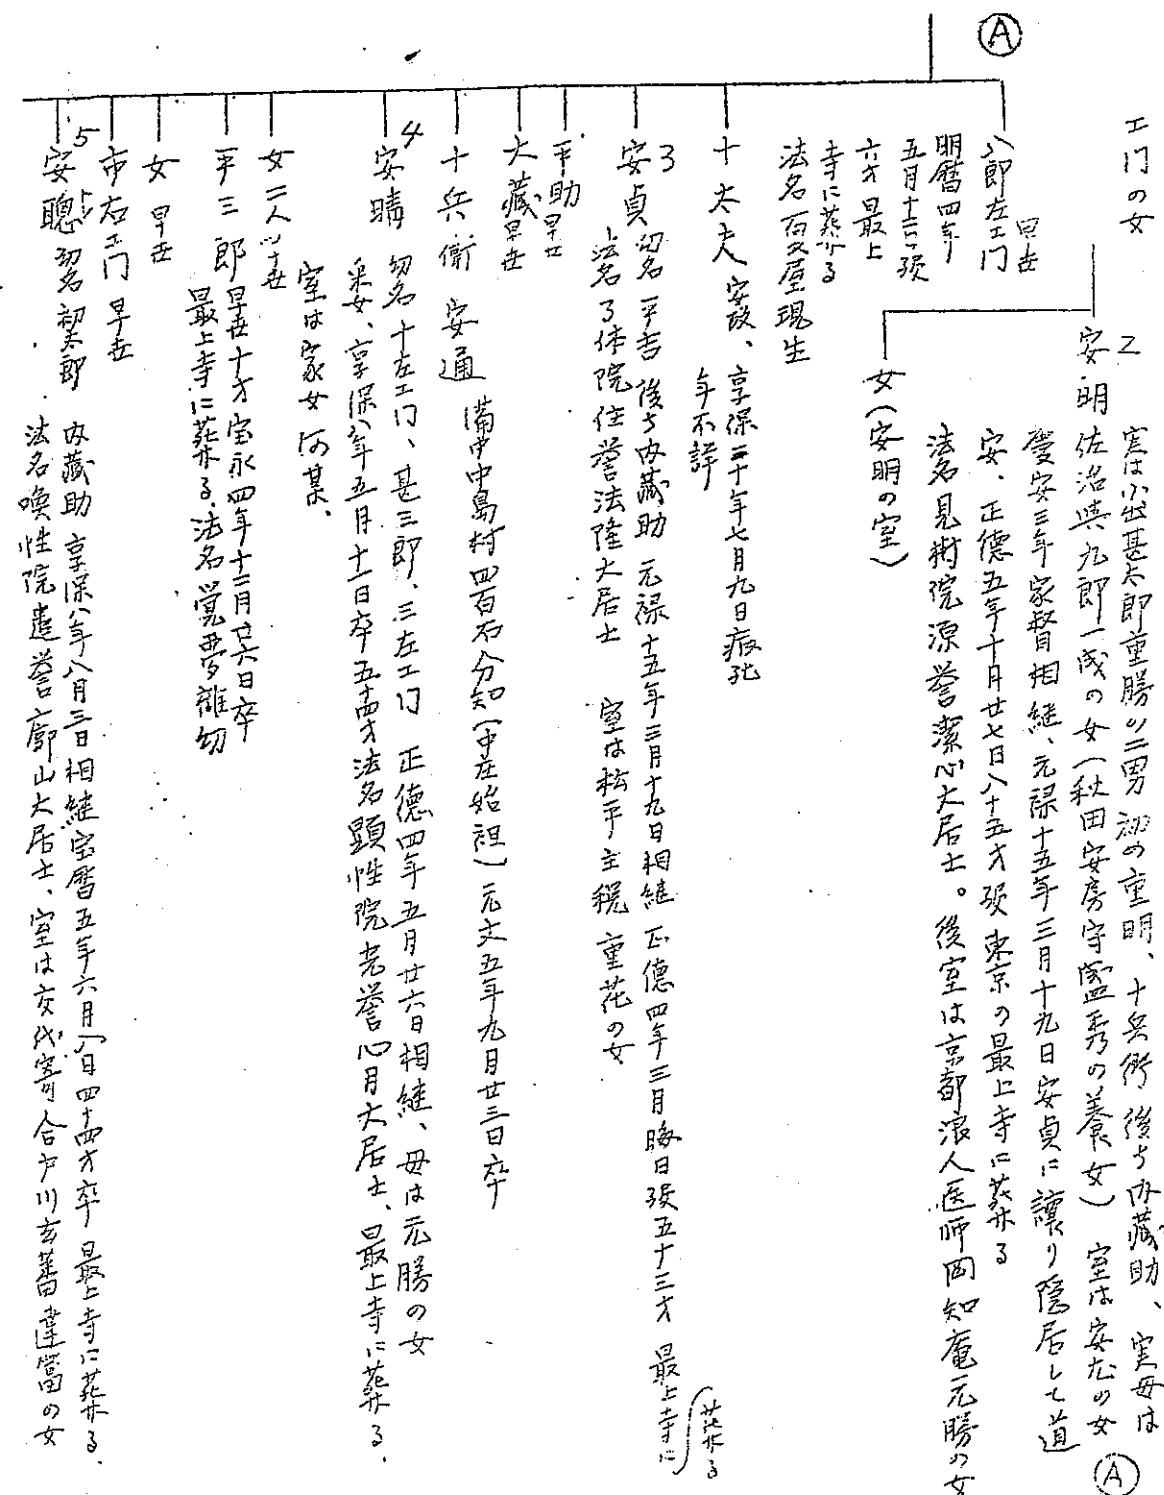 エ門の女
2
安明
実は小出甚太郎重勝の二男 初め重明、十兵衛 後ち内蔵助、実母は
佐治與九郎一成の女(秋田安房守盛秀の養女) 室は安尤の女
慶安三年家督相継、元禄十五年三月十九日安貞に譲り隠居して道
安、正徳五年十月廿七日八十五才歿 東京の最上寺に葬る
法名見樹院源誉潔心大居士。後室は京都浪人医師岡知庵元勝の女
Ⓐ
女(安明の室)
Ⓐ
八郎左エ門 早世
明暦四年
五月十二日歿
六才 最上
寺に葬る
法名 屋現生
十太夫 安政、享保二十年七月九日病死
年不詳
3
安貞 幼名 平吉 後ち内蔵助 元禄十五年三月十九日相継 正徳四年三月晦日歿五十三才 最上寺に
葬る
法名了体院住誉法隆大居士 室は松平主税重花の女
平助 早世
大蔵 早世
十兵衛 安通 備中中島村四百石分知(中庄始祖)元文五年九月廿三日卒
4
安晴 幼名 十左エ門、甚三郎、三左エ門 正徳四年五月廿六日相継、母は元勝の女
采女、享保八年五月十一日卒五十四才法名顕性院光誉心月大居士、最上寺に葬る.
室は家女 河某、
女二人 早世
平三郎 早世十才宝永四年十二月廿六日卒
最上寺に葬る、法名覚夢離幻
女 早世
市右エ門 早世
5
安聰 幼名 初太郎 内蔵助 享保八年八月三日相継宝暦五年六月八日四十四才卒 最上寺に葬る.
法名喚性院進誉廓山大居士、室は交代寄合戸川玄蕃達富の女